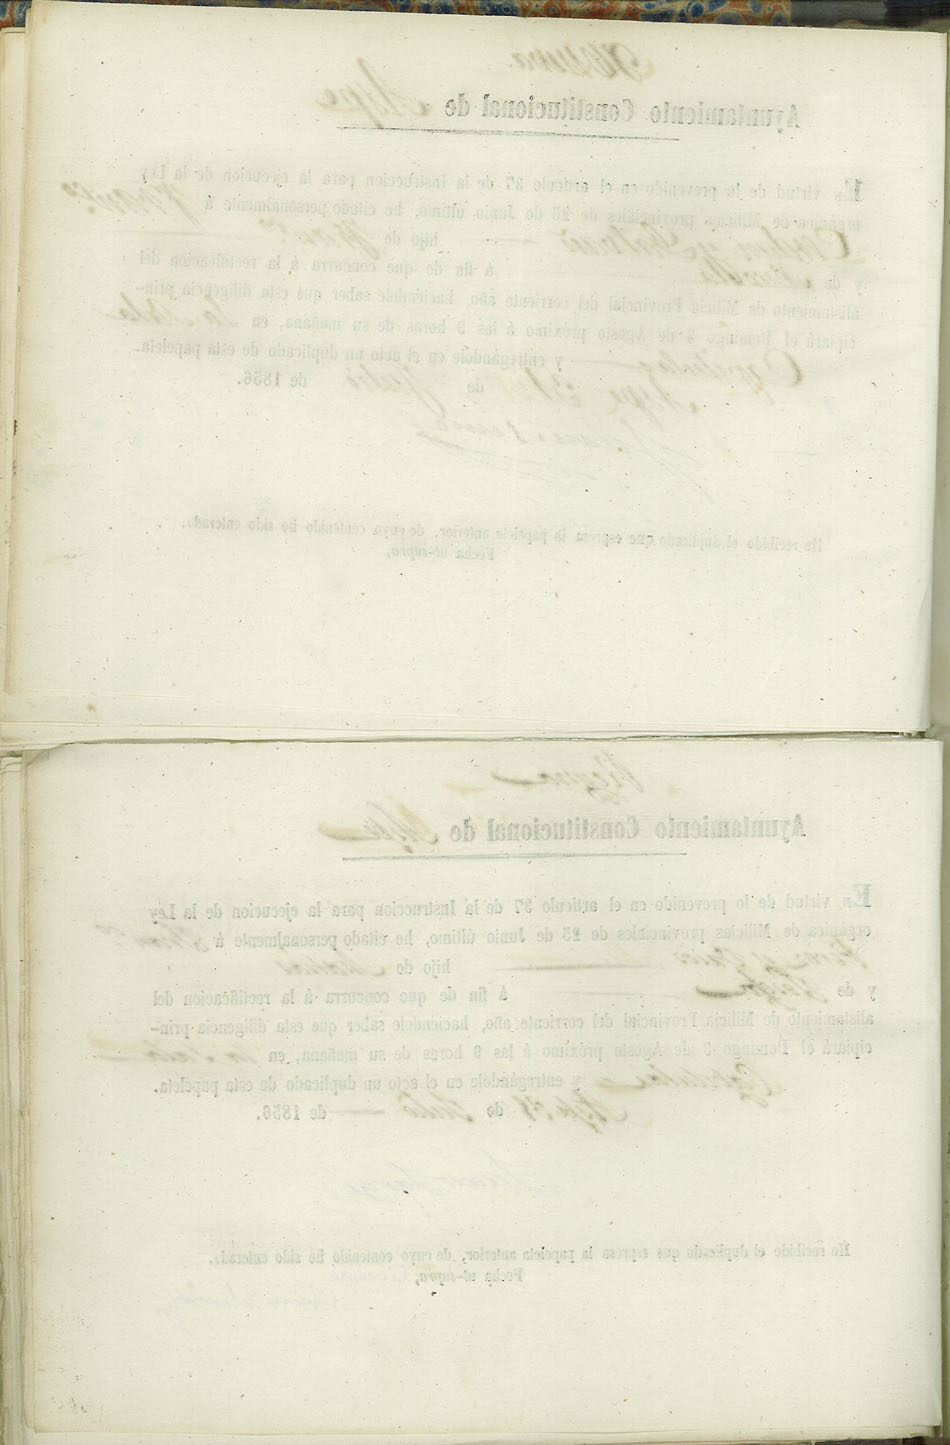 Ayuntamiento Constitucional de Aspe
En virtud de lo prevenido en el artículo 37 de la Instruccion para la ejecucion de la Ley
orgánica de Milicias provinciales de 25 de Junio último, he citado personalmente á
hijo de
y de á fin de que concurra á la rectificacion del
alistamiento de Milicia Provincial del corriente año, haciéndole saber que esta diligencia prin-
cipiará el Domingo 3 de Agosto próximo á las 9 horas de su mañana, en la Sala
Capitular y entregándole en el acto un duplicado de esta papeleta.
Aspe de Julio de 1856.
He recibido el duplicado que espresa la papeleta anterior, de cuyo contenido he sido enterado.
Fecha ut-supra,
Ayuntamiento Constitucional de Aspe
En virtud de lo prevenido en el artículo 37 de la Instruccion para la ejecucion de la Ley
orgánica de Milicias provinciales de 25 de Junio último, he citado personalmente á
hijo de
y de á fin de que concurra á la rectificacion del
alistamiento de Milicia Provincial del corriente año, haciéndole saber que esta diligencia prin-
cipiará el Domingo 3 de Agosto próximo á las 9 horas de su mañana, en la Sala
Capitular y entregándole en el acto un duplicado de esta papeleta.
Aspe de Julio de 1856.
He recibido el duplicado que espresa la papeleta anterior, de cuyo contenido he sido enterado.
Fecha ut-supra,